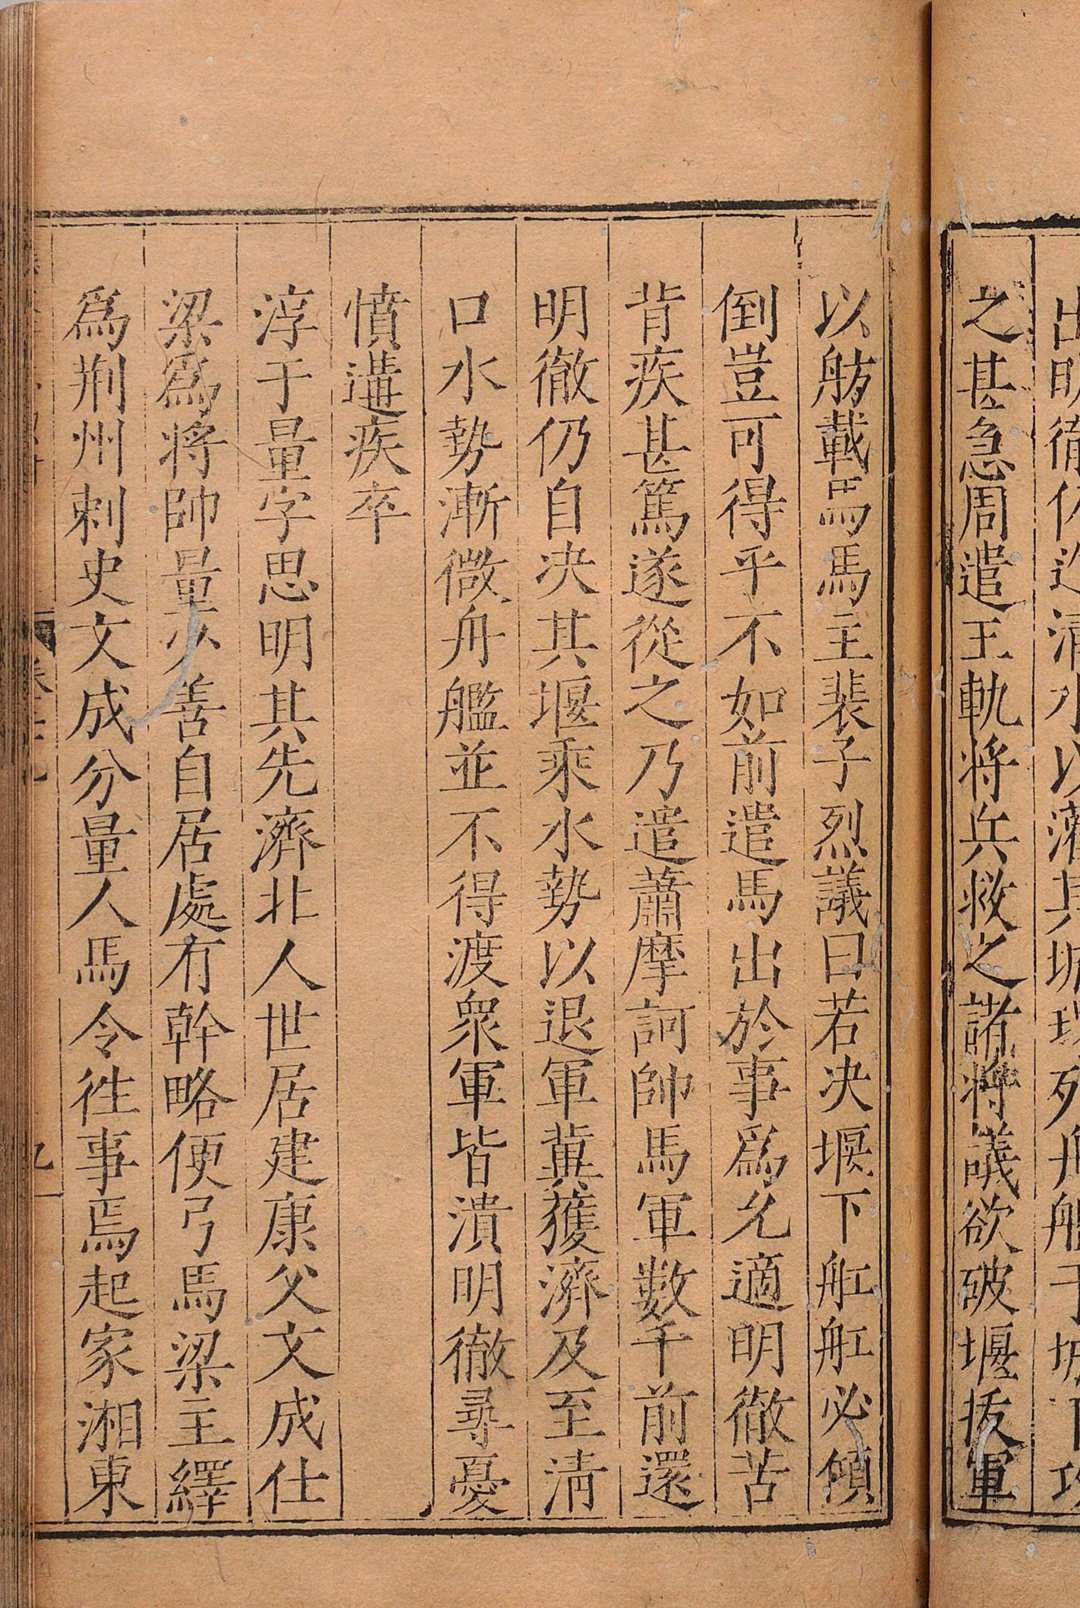 出明徹仍迮清水以灌其城環列舟艦于城下攻
之甚急周遣王軌將兵救之諸將議欲破堰拔軍
以舫載馬馬主裴子烈議曰若決堰下舡舡必傾
倒豈可得乎不如前遣馬出於事爲允適明徹苦
背疾甚篤遂從之乃遣蕭摩訶帥馬軍數千前還
明徹仍自决其堰乘水勢以退軍冀獲濟及至清
口水勢漸微舟艦並不得渡衆軍皆潰明徹尋憂
憤遘疾卒
淳于量字思明其先濟北人世居建康父文成仕
梁爲將帥量少善自居處有幹略便弓馬梁主繹
爲荆州刺史文成分量人馬令往事焉起家湘東
九